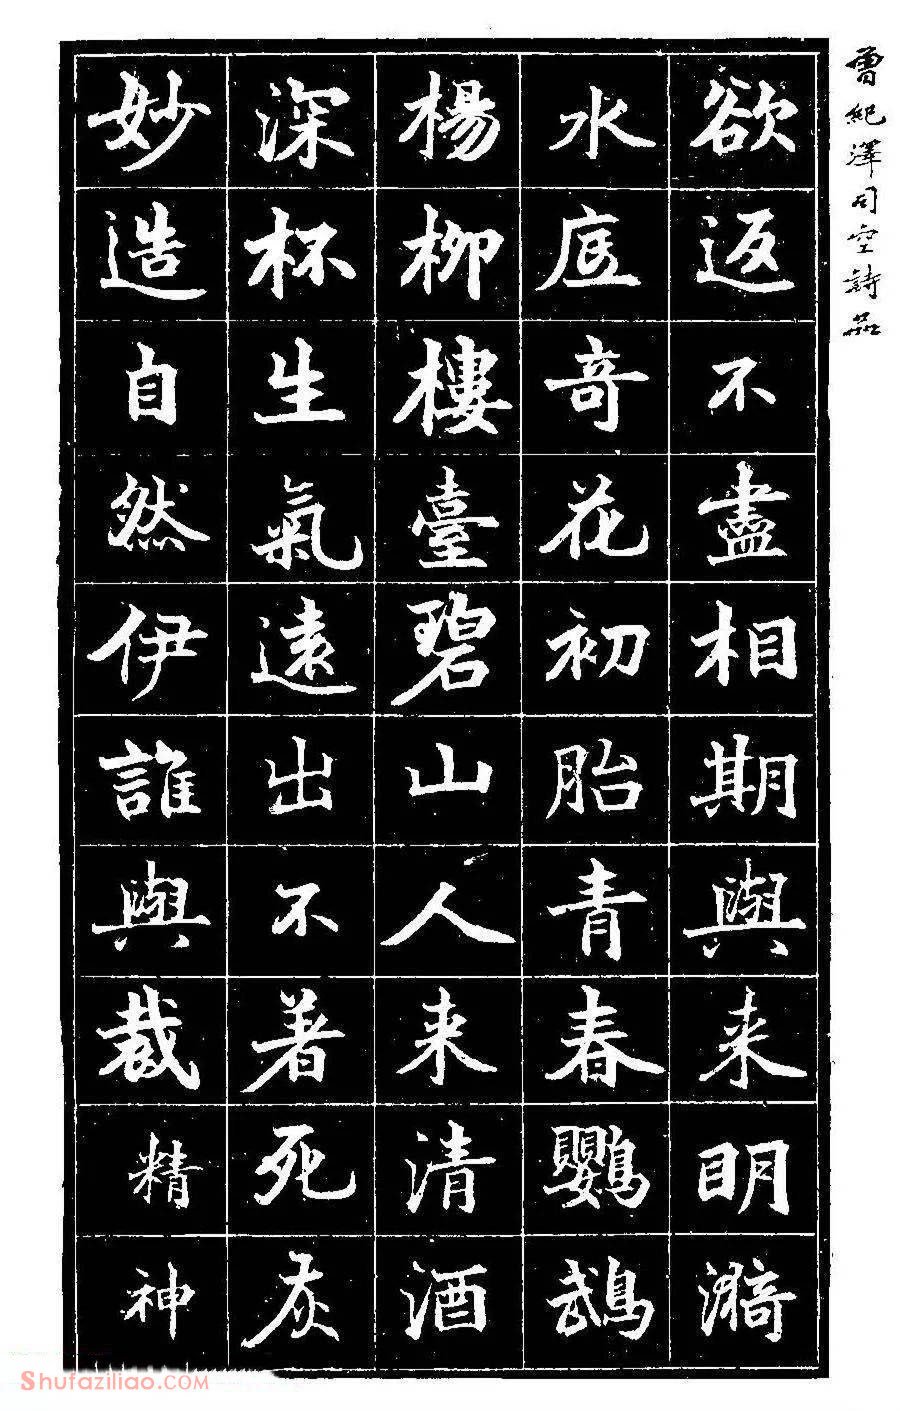 曾紀澤司空詩品
欲返不盡相與期與来明漪
水底奇花初胎青春鸚鵡
楊柳樓臺碧山人来清酒
深杯生氣遠出不著死灰
妙造自然伊誰與裁
精神
Shufaziliao.COM